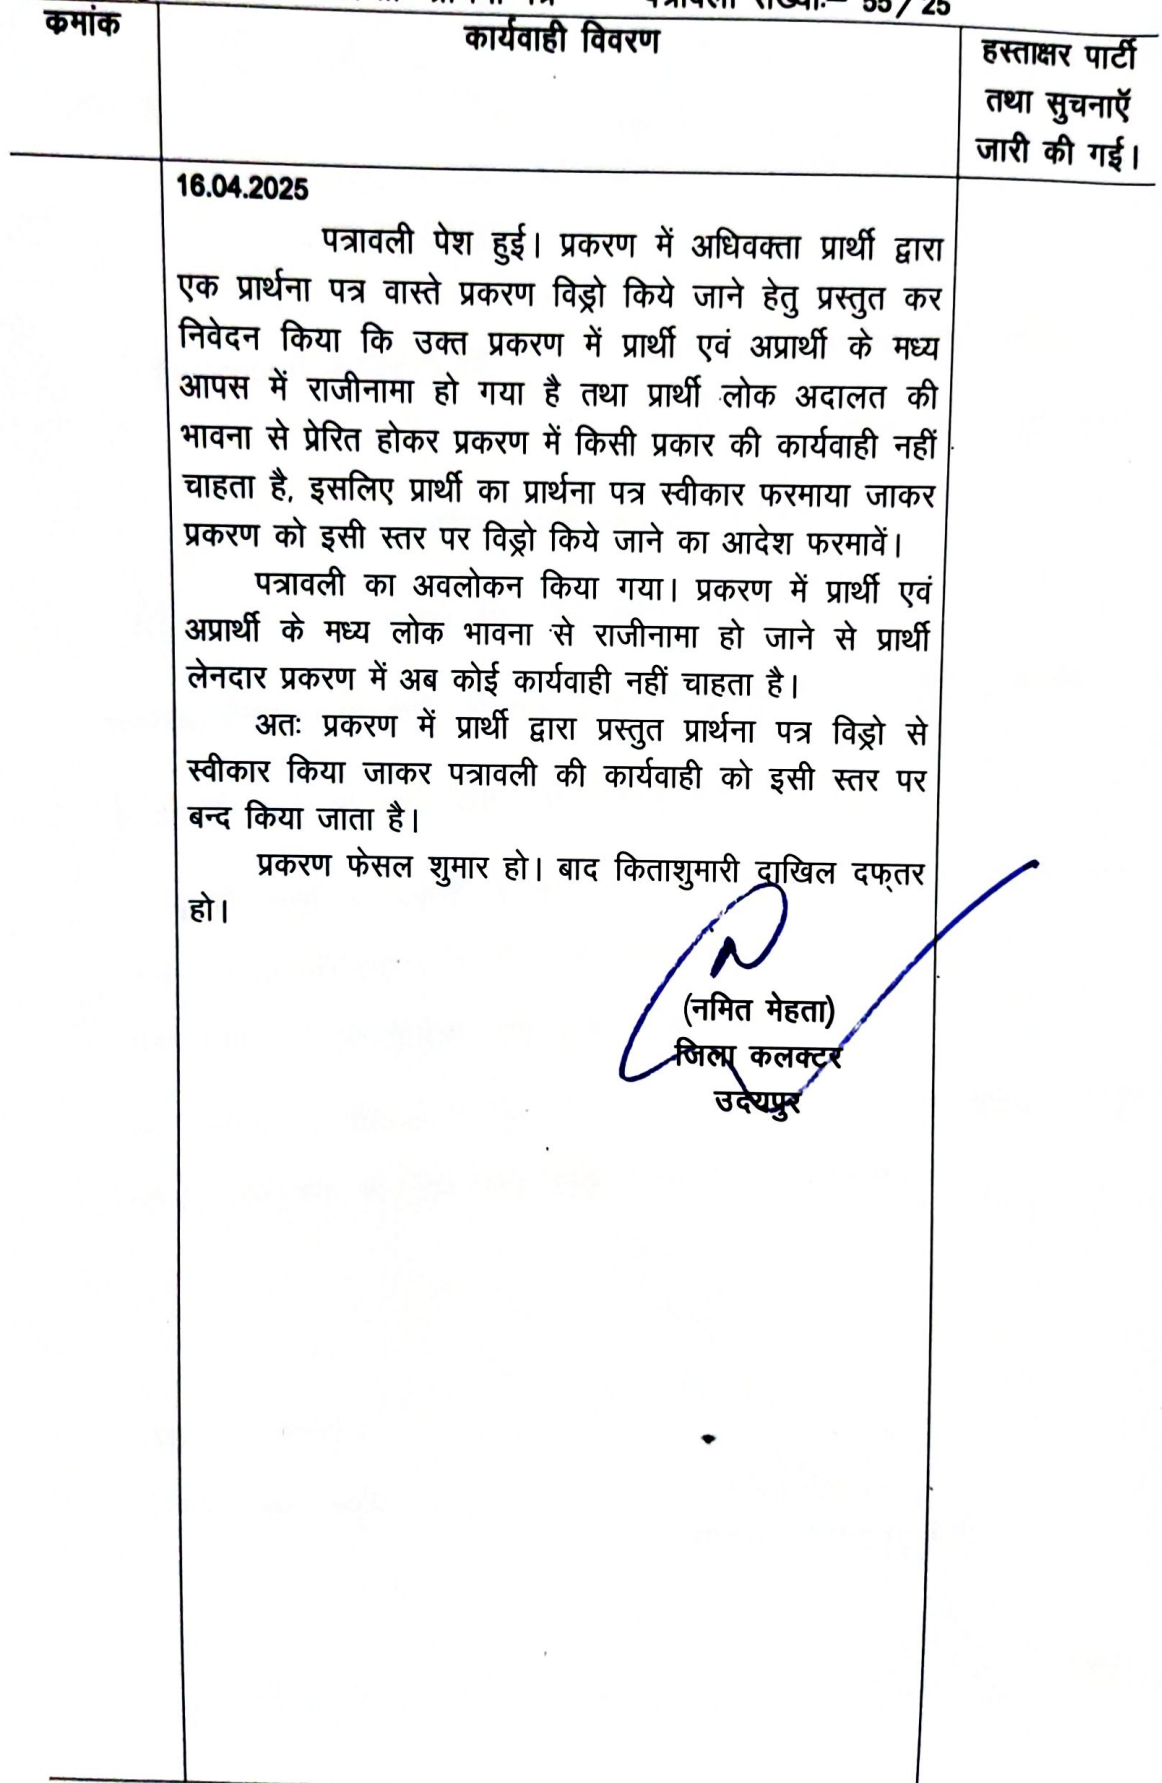 पत्रावली संख्याः– 55/25
क्रमांक
कार्यवाही विवरण
हस्ताक्षर पार्टी
तथा सुचनाएॅ
जारी की गई।
16.04.2025
पत्रावली पेश हुई। प्रकरण में अधिवक्ता प्रार्थी द्वारा
एक प्रार्थना पत्र वास्ते प्रकरण विड्रो किये जाने हेतु प्रस्तुत कर
निवेदन किया कि उक्त प्रकरण में प्रार्थी एवं अप्रार्थी के मध्य
आपस में राजीनामा हो गया है तथा प्रार्थी लोक अदालत की
भावना से प्रेरित होकर प्रकरण में किसी प्रकार की कार्यवाही नहीं
चाहता है, इसलिए प्रार्थी का प्रार्थना पत्र स्वीकार फरमाया जाकर
प्रकरण को इसी स्तर पर विड्रो किये जाने का आदेश फरमावें।
पत्रावली का अवलोकन किया गया। प्रकरण में प्रार्थी एवं
अप्रार्थी के मध्य लोक भावना से राजीनामा हो जाने से प्रार्थी
लेनदार प्रकरण में अब कोई कार्यवाही नहीं चाहता है।
अतः प्रकरण में प्रार्थी द्वारा प्रस्तुत प्रार्थना पत्र विड्रो से
स्वीकार किया जाकर पत्रावली की कार्यवाही को इसी स्तर पर
बन्द किया जाता है।
प्रकरण फेसल शुमार हो। बाद किताशुमारी दाखिल दफ्तर
हो।
(नमित मेहता)
जिला कलक्टर
उदयपुर